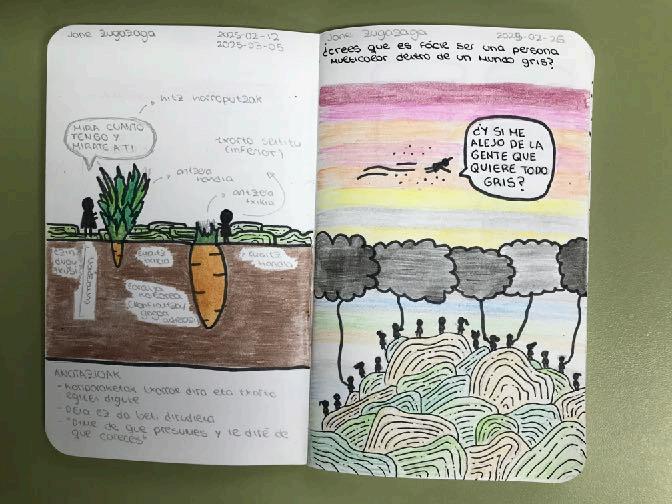 Jone Zugazaga
2025-02-12
2025-03-05
hitz horroputzak
MIRA CUANTO
TENGO Y
MIRATE A TI
txarto sentitu
(inferior)
antzera
handia
antzera
txikia
EZIN
DUGU
IKUSI
sustraia
handia
ANOTAZIOAK
- Konparaketak txarrak dira eta txarto
egiten digute
- Dena ez da beti dirudiena
- "Dime de que presumes y te diré de
que careces"
Jone Zugazaga
2025-02-26
¿Crees que es fácil ser una persona
multicolor dentro de un mundo gris?
¿Y SI ME
ALEJO DE LA
GENTE QUE
QUIERE TODO
GRIS?